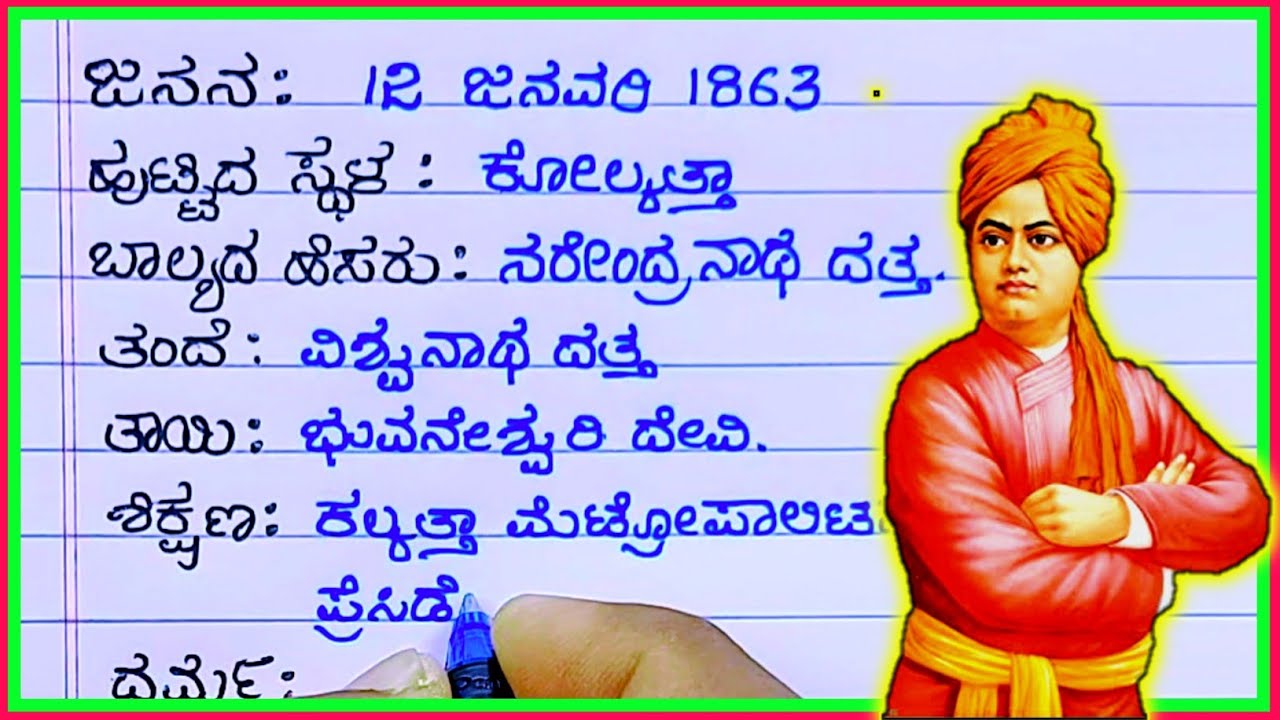 ಜನನ: 12 ಜನವರಿ 1863
ಹುಟ್ಟಿದ ಸ್ಥಳ : ಕೋಲ್ಕತ್ತಾ
ಬಾಲ್ಯದ ಹೆಸರು: ನರೇಂದ್ರನಾಥ ದತ್ತ.
ತಂದೆ: ವಿಶ್ವನಾಥ ದತ್ತ
ತಾಯಿ: ಭುವನೇಶ್ವರಿ ದೇವಿ.
ಶಿಕ್ಷಣ: ಕಲ್ಕತ್ತಾ
ಪ್ರೆಸಿಡೆ
ಧರ್ಮ: